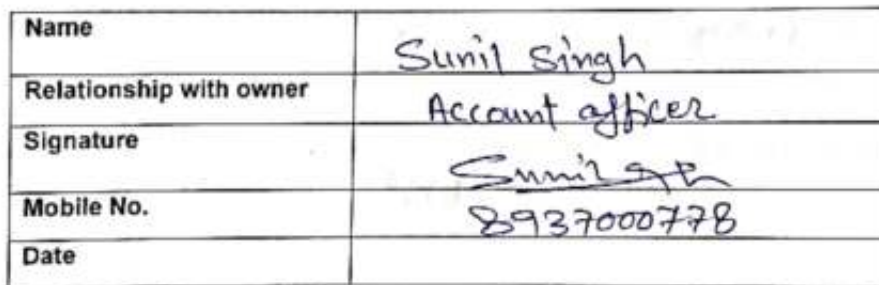 Name Sunil Singh
Relationship with owner Account officer
Signature Sunil
Mobile No. 8937000778
Date